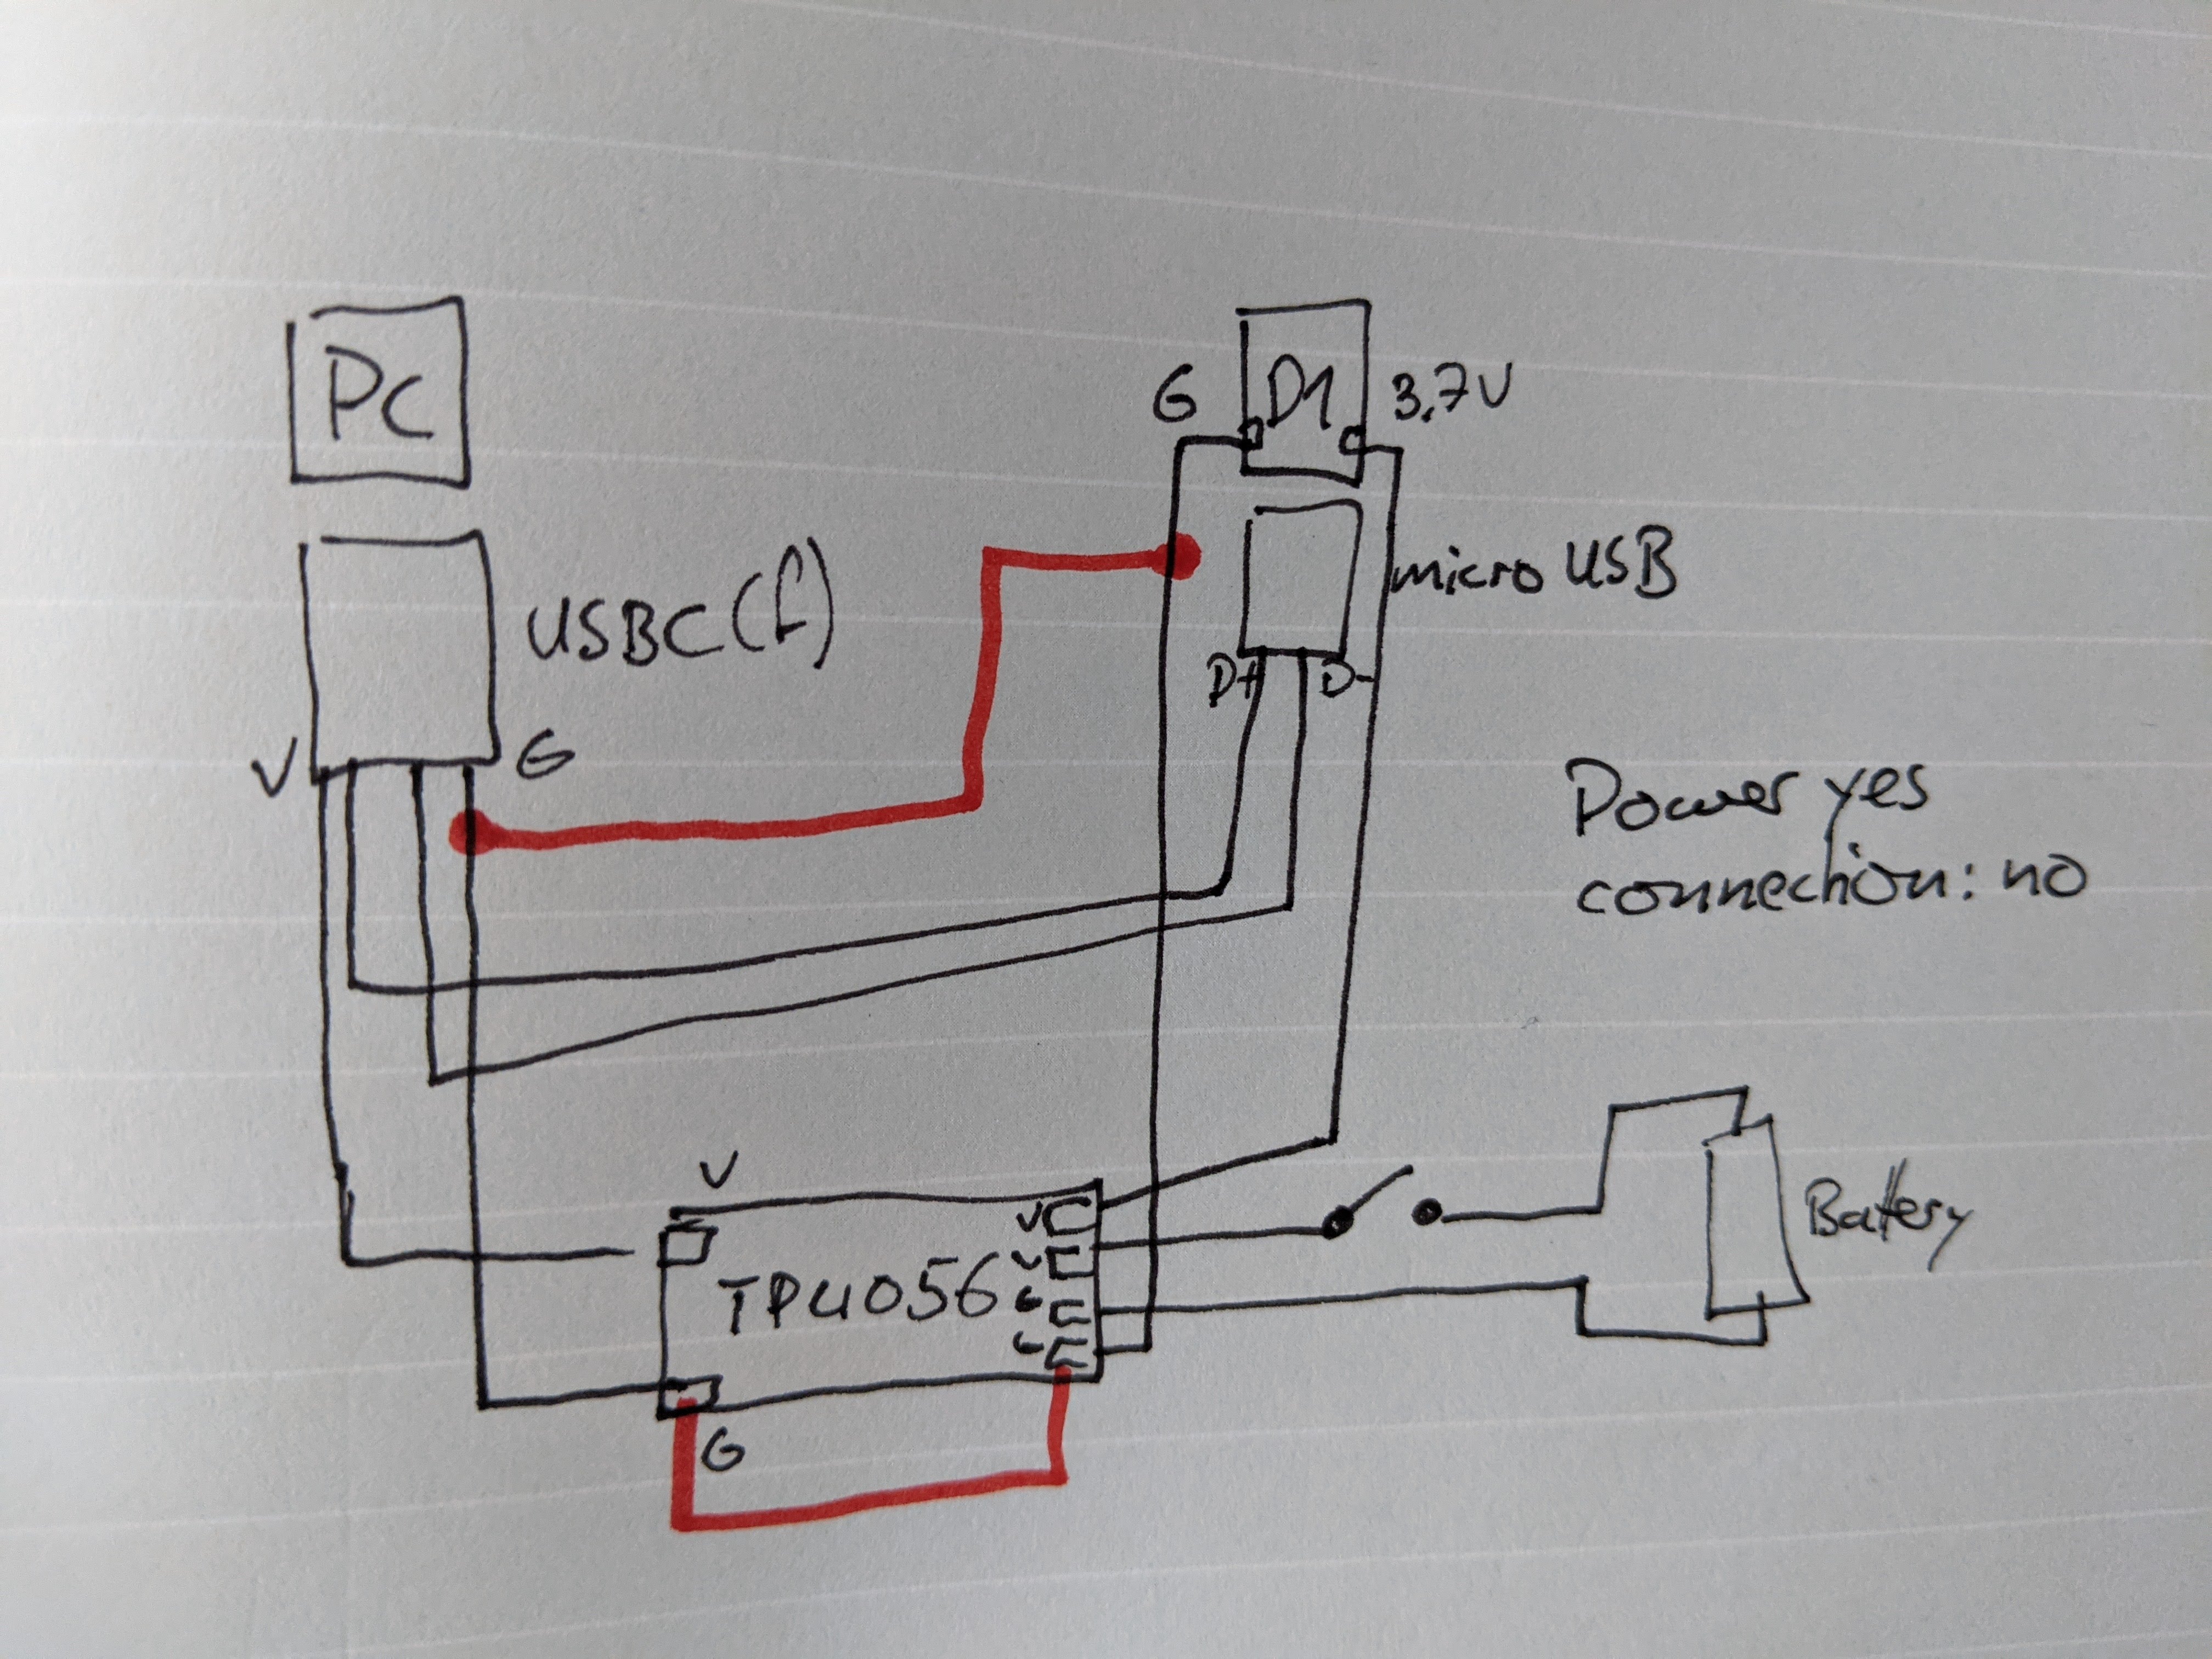 PC
G
D1
3.7V
USBC(f)
micro USB
D+
D-
V
G
Power yes
connection: no
V
V
V
G
TP4056
Battery
G